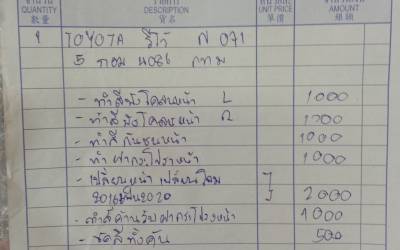 จำนวน รายการ หน่วยละ จำนวนเงิน
QUANTITY DESCRIPTION UNIT PRICE AMOUNT
數量 貨名 單價 銀額
1 TOYOTA รีโว่ 071
5 กอม 4086 กทม
- ทำสีบังโคลนหน้า L 1000
- ทำสีบังโคลนหน้า R 1000
- ทำสี กันชนหน้า 1000
- ทำ ฝากระโปรงหน้า 1000
- เปลี่ยนหน้า เปลี่ยนโฉม
2016เป็น2020 2000
- ทำสีด้านในฝากระโปรงหน้า 1000
- ขัดสีทั้งคัน 500